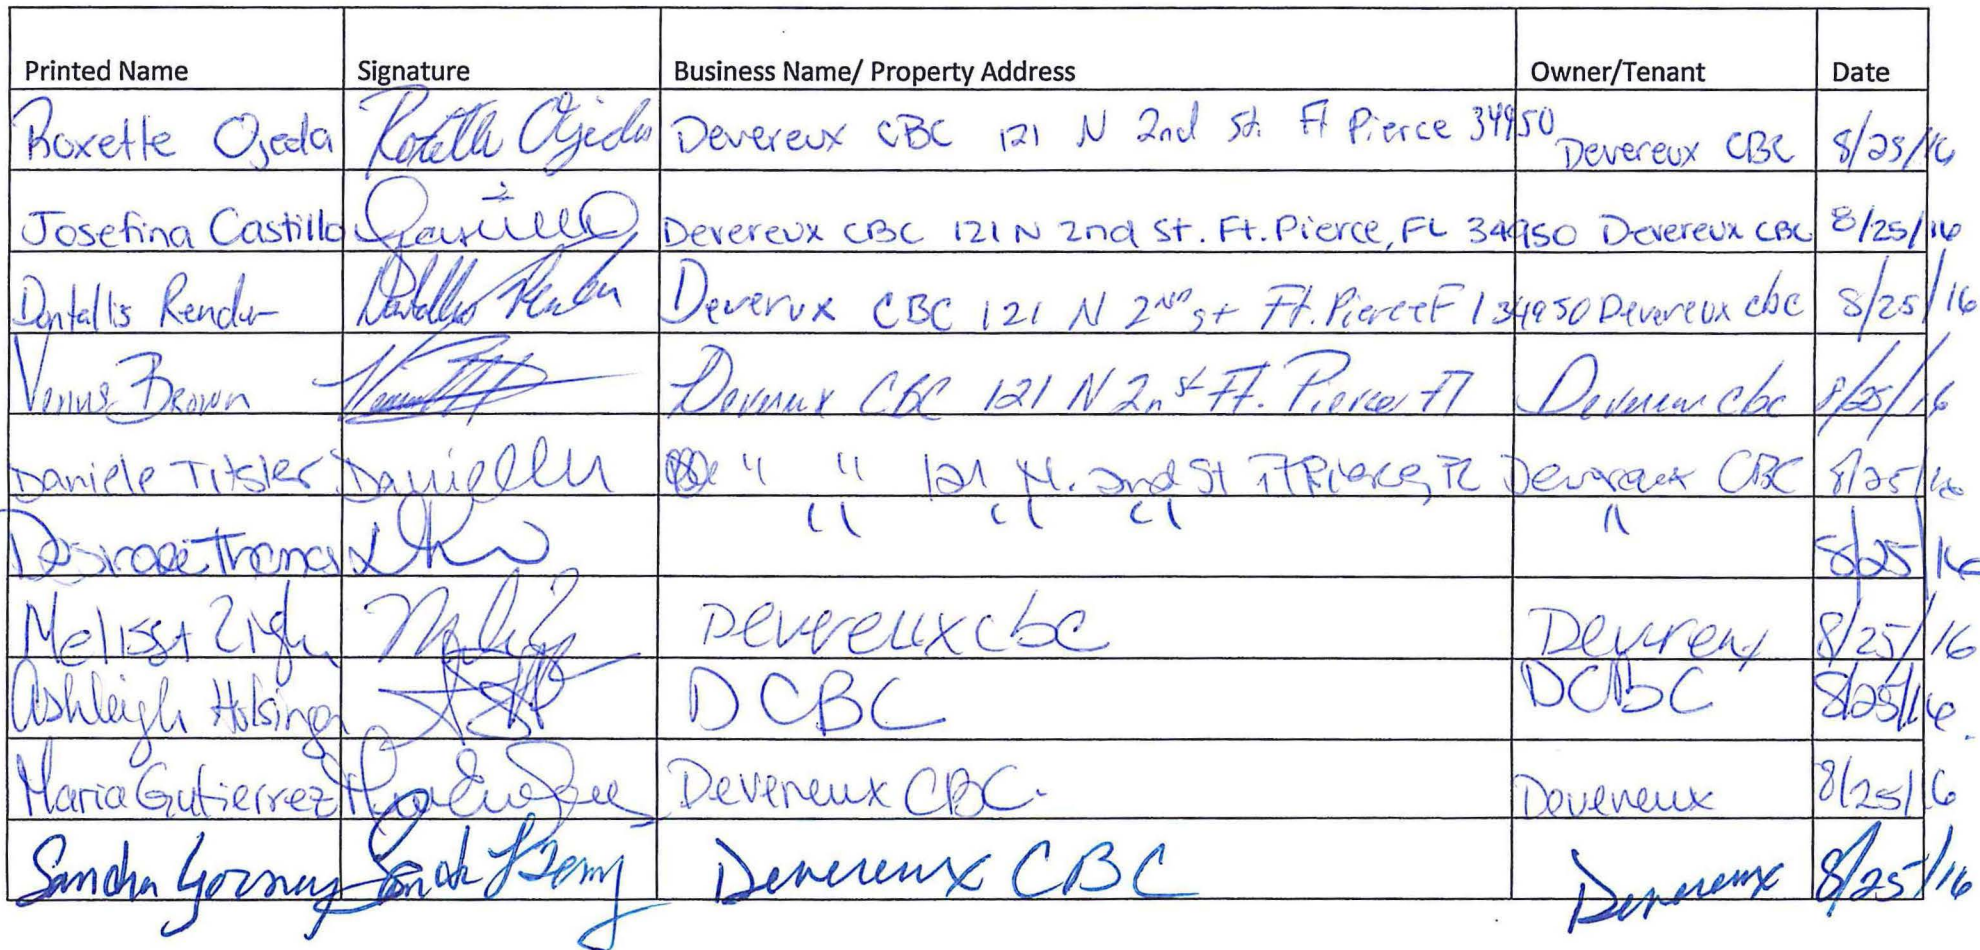 Printed Name Signature Business Name/ Property Address Owner/Tenant Date
Roxette Ojeda Roxette Ojeda Devereux CBC 121 N 2nd St. Ft Pierce 34950 Devereux CBC 8/25/16
Josefina Castillo Castillo Devereux CBC 121 N 2nd St. Ft. Pierce, FL 34950 Devereux CBC 8/25/16
Dontallis Render Dontallis Render Deverux CBC 121 N 2ND st Ft. Pierce Fl 34950 Devereux cbc 8/25/16
Venus Brown CBC 121 N 2n st Ft. Pierce Fl cbc 8/25/16
Daniele Titsler Danielle " " 121 N. 2nd St Ft Pierce, FL Devereux CBC 8/25/16
Desiraee Thomas " " " " 8/25/16
Melissa Devereux cbc Devreux 8/25/16
Ashleigh Holsinger DCBC DCBC 8/25/16
Maria Gutierrez Devereux CBC. Devereux 8/25/16
Sandra Devereux CBC Devereux 8/25/16